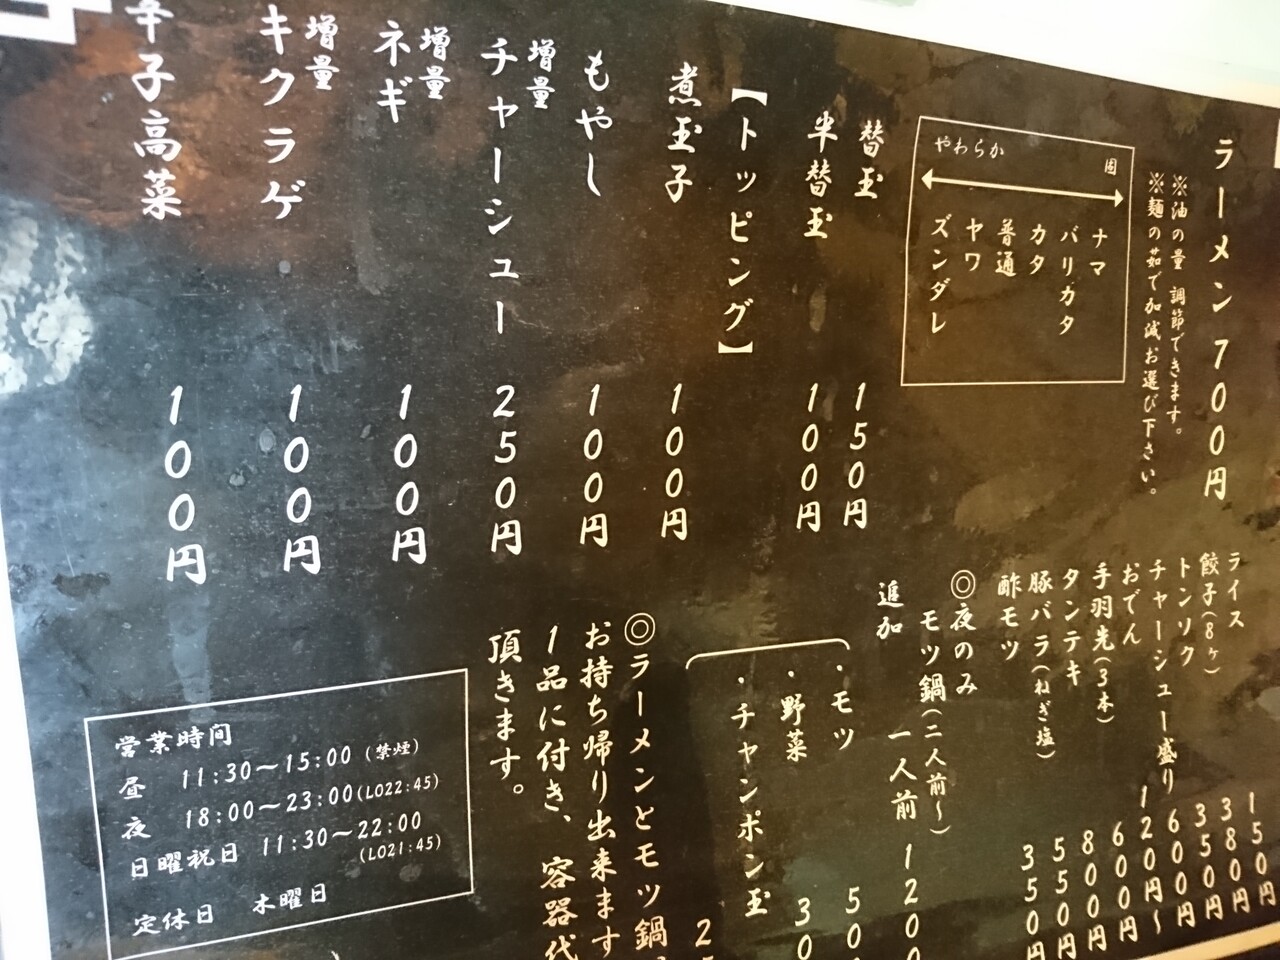 ラーメン 700円
※油の量 調節できます。
※麺の茹で加減お選び下さい。
やわらか
固
ナマ
バリカタ
カタ
普通
ヤワ
ズンダレ
替玉 150円
半替玉 100円
【トッピング】
煮玉子 100円
もやし 100円
増量
チャーシュー 250円
増量
ネギ 100円
増量
キクラゲ 100円
辛子高菜 100円
ライス 150円
餃子(8ヶ) 380円
トンソク 350円
チャーシュー盛り 600円
おでん 120円〜
手羽先(3本) 600円
タンテキ 800円
豚バラ(ねぎ塩) 550円
酢モツ 350円
◎夜のみ
モツ鍋(二人前〜)
一人前 1200
追加
・モツ 50
・野菜 30
・チャンポン玉 2
◎ラーメンとモツ鍋
お持ち帰り出来ます
1品に付き、容器代
頂きます。
営業時間
昼 11:30〜15:00(禁煙)
夜 18:00〜23:00(LO22:45)
日曜祝日 11:30〜22:00
(LO21:45)
定休日 木曜日